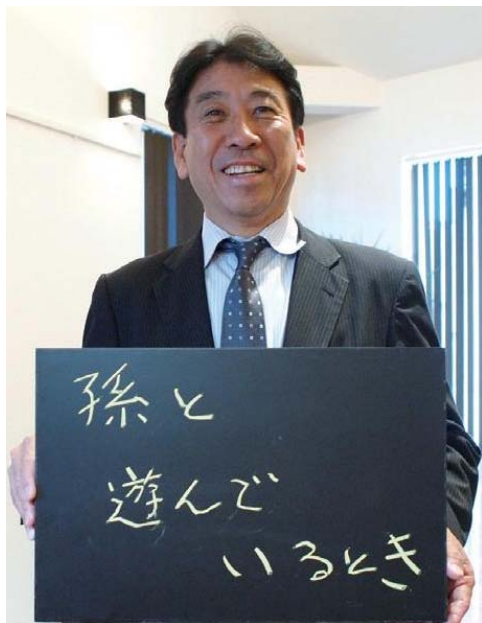 孫と
遊んで
いるとき